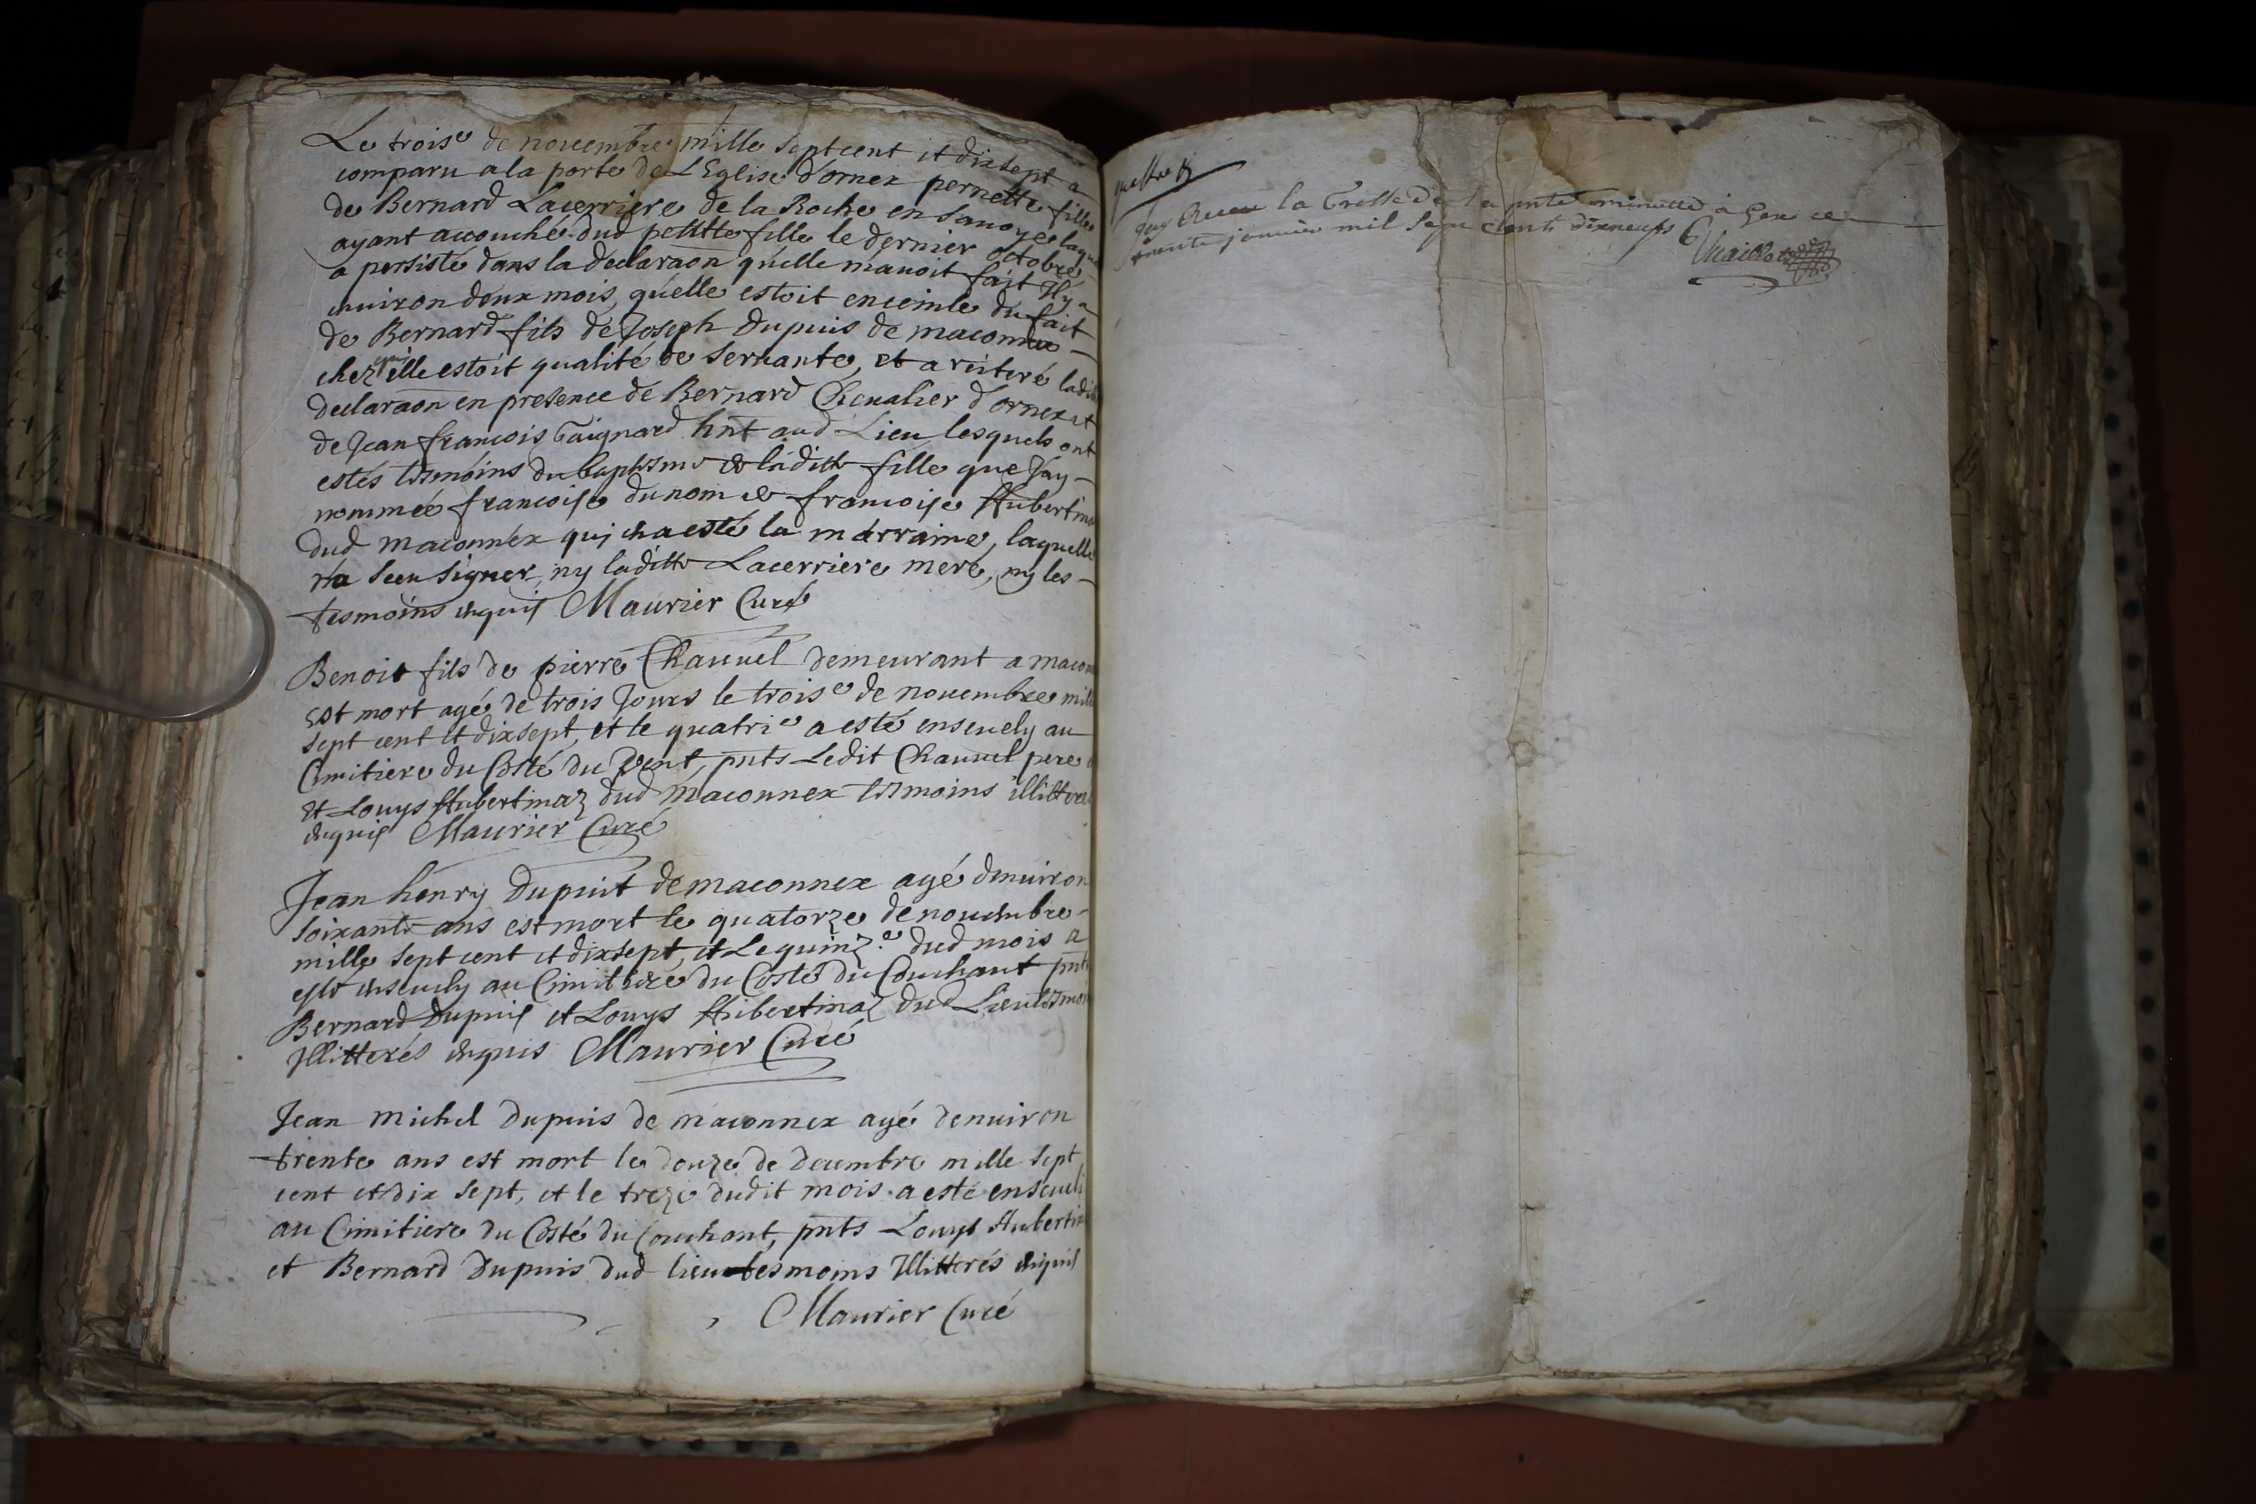 Le trois.e de nouembre mille sept cent et dix sept a
comparu a la porte de L'Eglise d'ornex pernette fille
de Bernard Lacerriere de la Roche en Sauoye laque
ayant accouché dud petitte fille le dernier octobre
a persisté dans la declaraon qu'elle m'auoit fait Il y a
enuiron deux mois, qu'elle estoit enceinte du fait
de Bernard fils de Joseph Dupuis de maconnex
chez qui elle estoit qualité de seruante, et a reiteré ladit
declaraon en presence de Bernard Cheualier d'ornex et
de Jean francois Gaignard hnt aud Lieu lesquels ont
estés tesmoins du baptesme de laditte fille que J'ay
nommée francoise du nom de francoise Hubertina
dud maconnex qui en a esté la marraine, laquelle
n'a sceu signer, ny laditte Lacerriere mere, ny les
tesmoins enquis Maurier Curé
Benoit fils de pierre Chauuel demeurant a macon
est mort agé de trois Jours le trois.e de nouembre mill
sept cent et dix sept, et le quatri.e a esté enseuely au
Cimitiere du Costé du Vent, pnts Ledit Chauuel pere
et Louys Hubertinaz dud maconnex tesmoins illitteré
enquis Maurier Curé
Jean henry Dupuit de maconnex agé d'enuiron
soixante ans est mort le quatorze de nouembre
mille sept cent et dix sept, et Le quinz.e dud mois a
esté enseuely au Cimitiere du Costé du Couchant pnts
Bernard Dupuis et Louys Hubertinaz dud Lieu tesmoi
Illitterés enquis Maurier Curé
Jean michel Dupuis de maconnex agé d'enuiron
trente ans est mort le douze de decembre mille sept
cent et dix sept, et le treze dudit mois a esté enseueli
au Cimitiere du Costé du Couchant, pnts Louys Hubertin
et Bernard Dupuis dud lieu tesmoins Illitterés enquis
Maurier Curé
Jay Receu la Grosse de la pnte minutte à Gex ce
trente janvier mil sept cents dixneufs